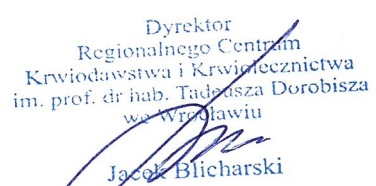 Dyrektor
Regionalnego Centrum
Krwiodawstwa i Krwiolecznictwa
im. prof. dr hab. Tadeusza Dorobisza
we Wrocławiu
Jacek Blicharski